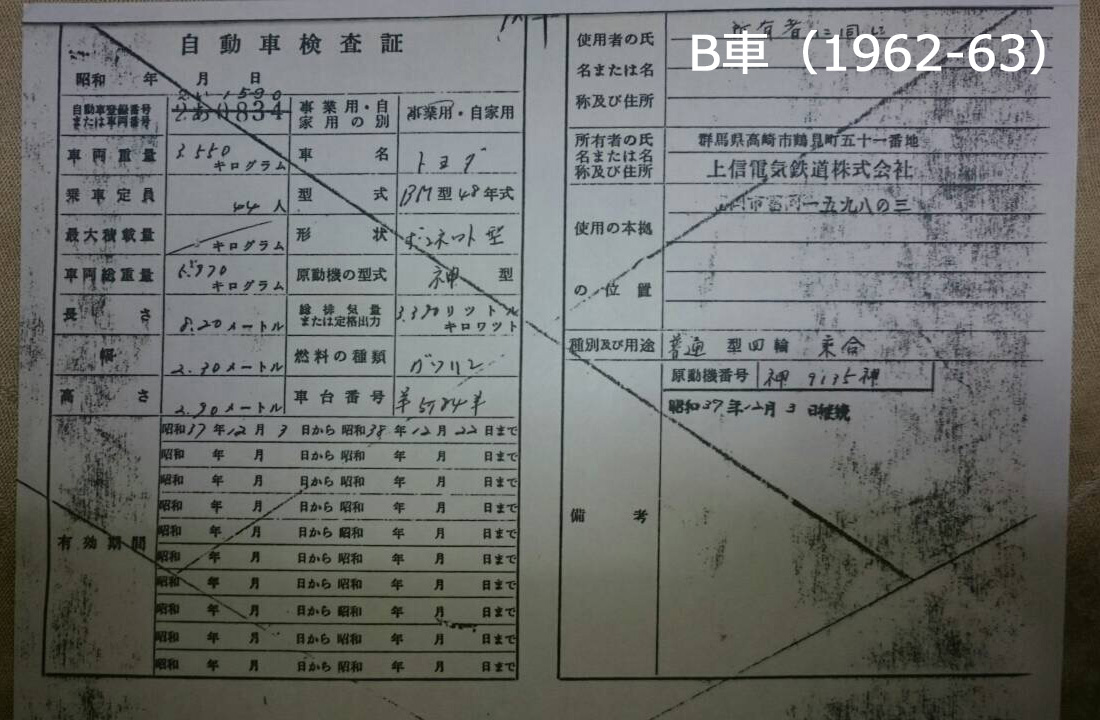 B車（1962-63）
自動車検査証
昭和 年 月 日
自動車登録番号
または車両番号
1590
2あ0834
事業用・自
家用の別
事業用・自家用
車両重量
キログラム
車名
トヨダ
乗車定員
44人
型式
BM型48年式
最大積載量
キログラム
形状
ボンネット型
車両総重量
キログラム
原動機の型式
神型
長さ
8.20メートル
総排気量
または定格出力
3.390リットル
キロワット
幅
2.30メートル
燃料の種類
ガソリン
高さ
2.90メートル
車台番号
有効期間
昭和37年12月3日から昭和38年12月22日まで
昭和 年 月 日から昭和 年 月 日まで
昭和 年 月 日から昭和 年 月 日まで
昭和 年 月 日から昭和 年 月 日まで
昭和 年 月 日から昭和 年 月 日まで
昭和 年 月 日から昭和 年 月 日まで
昭和 年 月 日から昭和 年 月 日まで
昭和 年 月 日から昭和 年 月 日まで
昭和 年 月 日から昭和 年 月 日まで
昭和 年 月 日から昭和 年 月 日まで
使用者の氏
名または名
称及び住所
所有者に同じ
所有者の氏
名または名
称及び住所
群馬県高崎市鶴見町五十一番地
上信電気鉄道株式会社
使用の本拠
の位置
一五九八の三
種別及び用途
普通型四輪 乗合
原動機番号
神 9135神
昭和37年12月3日継続
備考